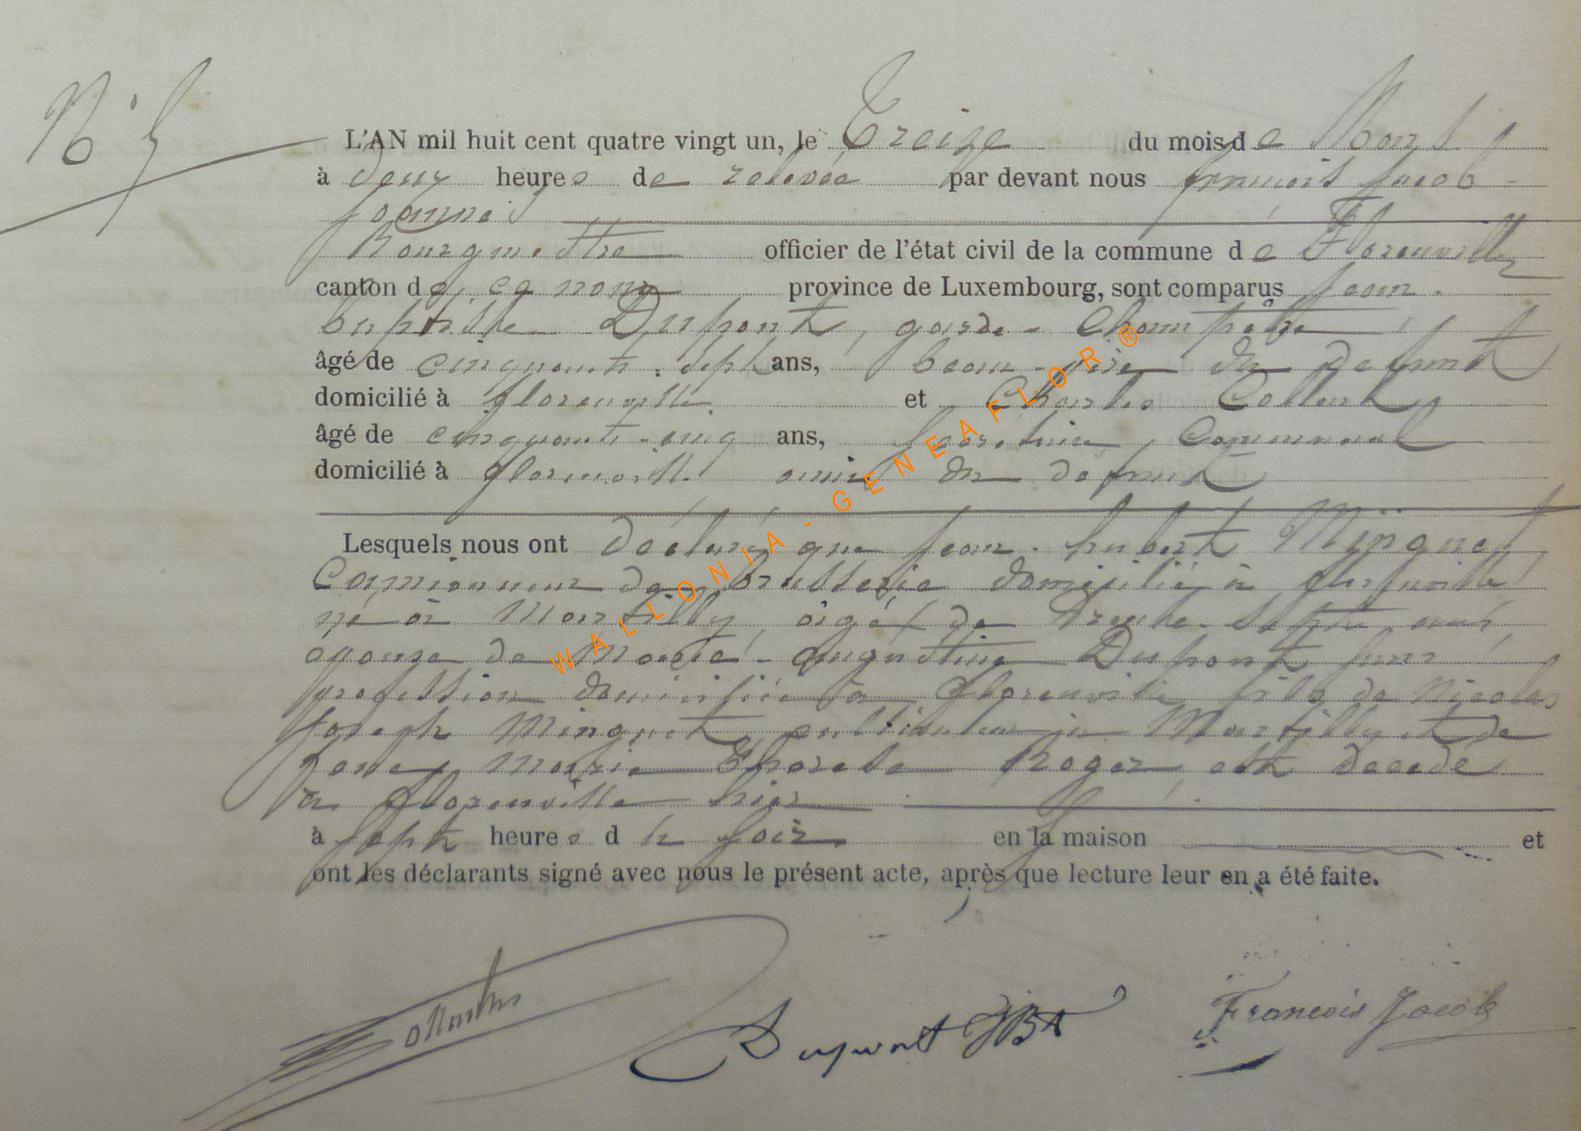 N° 5
L'AN mil huit cent quatre vingt un, le Treize du mois de Mars
à deux heures de relevée par devant nous françois Jacob
Bourgmestre officier de l'état civil de la commune de Florenville
canton de province de Luxembourg, sont comparus Jean
baptiste Dupont, garde-Champêtre
âgé de cinquante sept ans, beau-père du defunt
domicilié à florenville et Charles Collard
âgé de cinquante-cinq ans, Secrétaire Communal
domicilié à florenville ami du defunt
Lesquels nous ont déclaré que jean-hubert Minguet
Camionneur de brasserie domicilié à florenville
né à Martilly, âgé de Trente-Sept ans
epouse de Marie-augustine Dupont sans
profession domiciliée à florenville fils de Nicolas
Joseph Minguet cultivateur à Martilly et de
Marie Thérèse Roger est décédé
à florenville hier
à Sept heures du soir en la maison et
ont les déclarants signé avec nous le présent acte, après que lecture leur en a été faite.
Dupont JBt François Jacob
WALLONIA-GENEAFLOR®